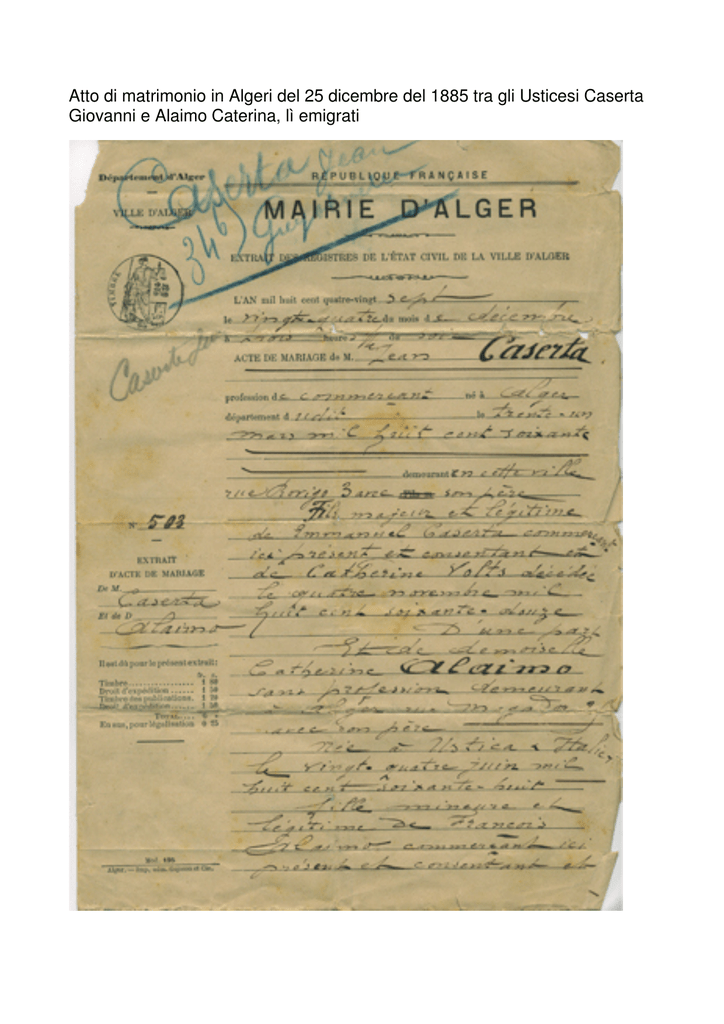 Atto di matrimonio in Algeri del 25 dicembre del 1885 tra gli Usticesi Caserta
Giovanni e Alaimo Caterina, lì emigrati
Département d'Alger
RÉPUBLIQUE FRANÇAISE
VILLE D'ALGER
MAIRIE D'ALGER
Caserta Jean
346
EXTRAIT DES REGISTRES DE L'ÉTAT CIVIL DE LA VILLE D'ALGER
TIMBRE
L'AN mil huit cent quatre-vingt sept
le vingt-quatre du mois de décembre
à trois heures du soir
ACTE DE MARIAGE de M. Jean Caserta
Caserta Jean
profession de commerçant né à Alger
département dudit le trente-un
mars mil huit cent soixante
demeurant en cette ville
rue avec son père
Fils majeur et légitime
de Emmanuel Caserta commerçant
ici présent et consentant et
de Catherine Volts décédée
le quatre novembre mil
huit cent soixante-douze
D'une part
Et de demoiselle
Catherine Alaimo
sans profession demeurant
à Alger rue
avec son père
Née à Ustica Italie
le vingt-quatre juin mil
huit cent soixante-huit
fille mineure et
légitime de François
Alaimo commerçant ici
présent et consentant et
N° 503
EXTRAIT
D'ACTE DE MARIAGE
De M.
Caserta
Et de D
Alaimo
Il est dû pour le présent extrait:
Timbre
Droit d'expédition
Timbre des publications
Droit d'expédition
TOTAL
En sus, pour légalisation 0 25
Mod.
Alger. — Imp.